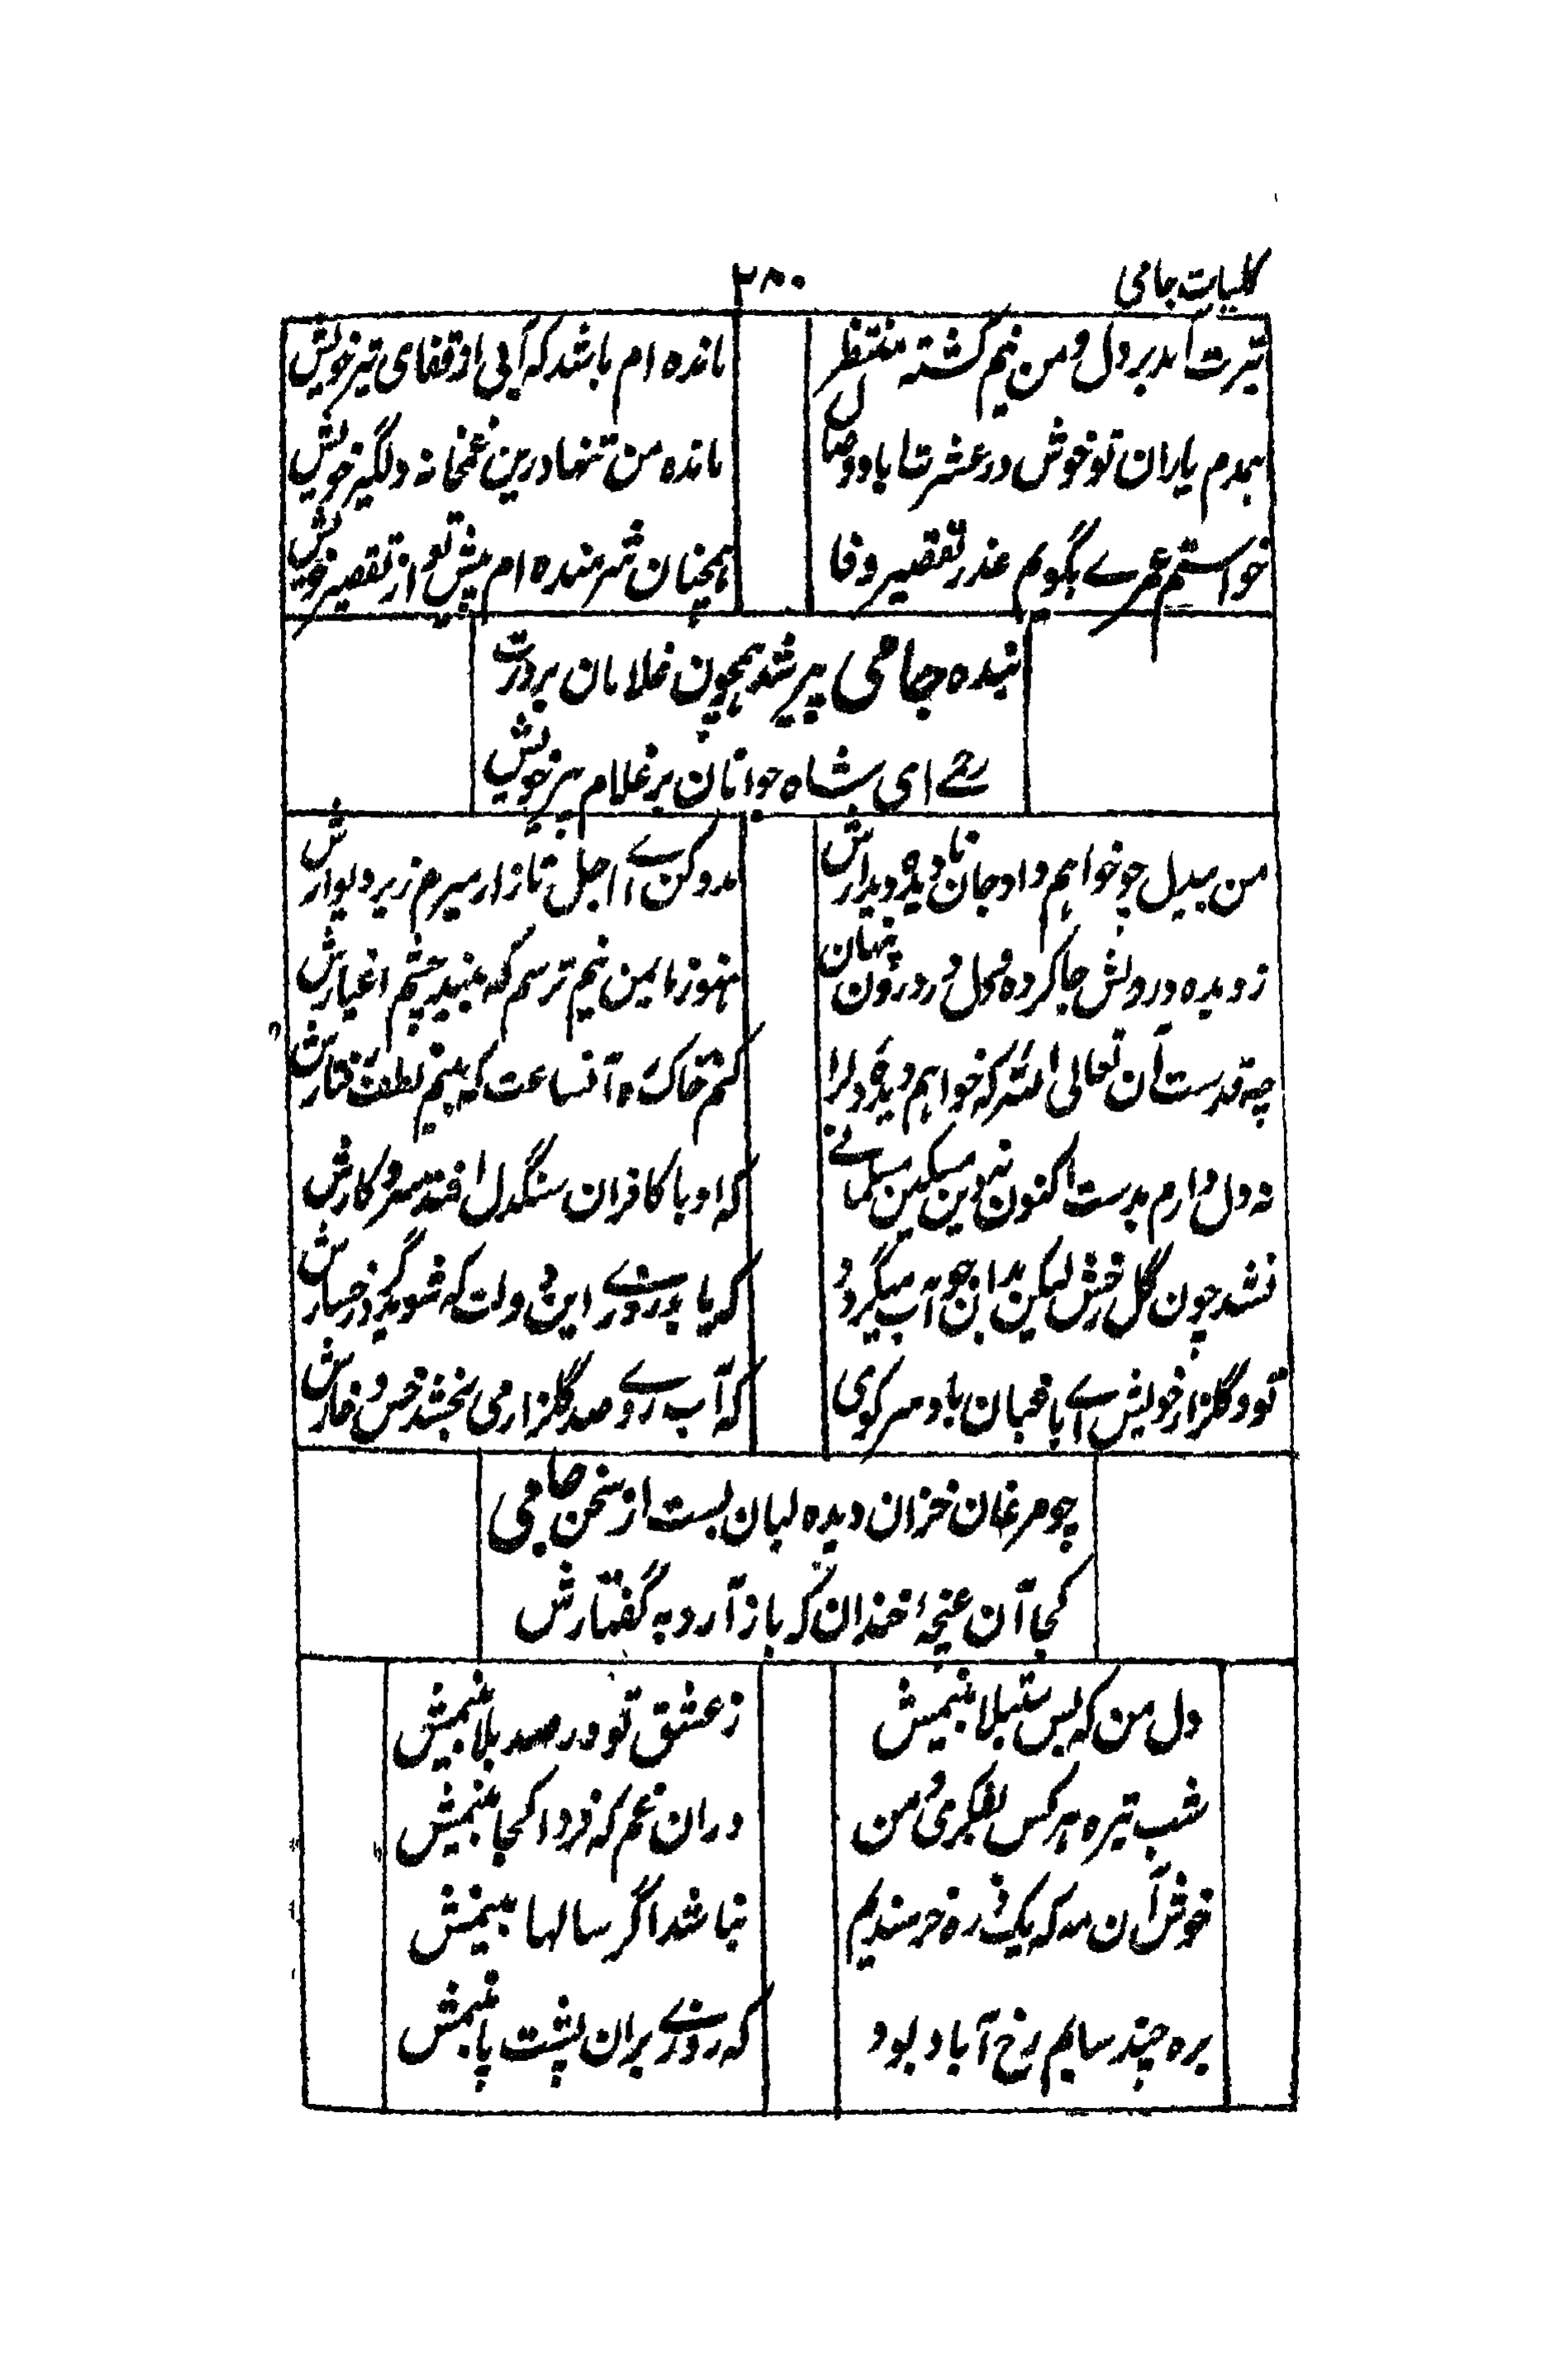 کلیات جامی
۲۸۰
تیرت آمد بر دل و من نیم کشته منتظر
مانده ام باشد که آیی از قفای تیر خویش
همدم یاران تو خوش در عشرت آباد وصال
مانده من تنها درین غمخانه دلگیر خویش
خواستم عمرے بگویم عذر تقصیر وفا
همچنان شرمنده ام پیش تو از تقصیر خویش
بنده جامی پیر شد همچون غلامان بر درت
رحمے ای شاه جوانان بر غلام پیر خویش
من بیدل چو خواهم داد جان نادیده دیدارش
مدد کن اے اجل تا زار میرم زیر دیوارش
ز دیده در دلش جا کرده و دل در درون پنهان
هنوز ایمن نیم ترسم که بیند چشم اغیارش
چه قدرست آن تعالی الله که خواهم دیده و دل را
کنم خاک ره آنساعت که بینم لطف رفتارش
نه دل دارم بدست اکنون نه دین مسکین مسلمانے
که او با کافران سنگدل افتد سر و کارش
نشد چون گل رخش لیکن بدان جو آب میگردد
که یابد روزے این دولت که شوید گرد رخسارش
تو و گلزار خویش اے باغبان باد سر کوی
که آب روے صد گلزار می بخشد خس و خارش
چو مرغان خزان دیده لبان بست از سخن جامی
کجا آن غنچهٔ خندان که باز آرد به گفتارش
دل من که بس مبتلا بینمیش
ز عشق تو در صد بلا بینمیش
شب تیره هر کس بفکری و من
دران غم که فردا کجا بینمیش
خوش آن مه که یک ذره خرسندیم
نباشد اگر سالها بینمش
بره چند سایم رخ آباد بود
که روزے بران پشت پا بینمش